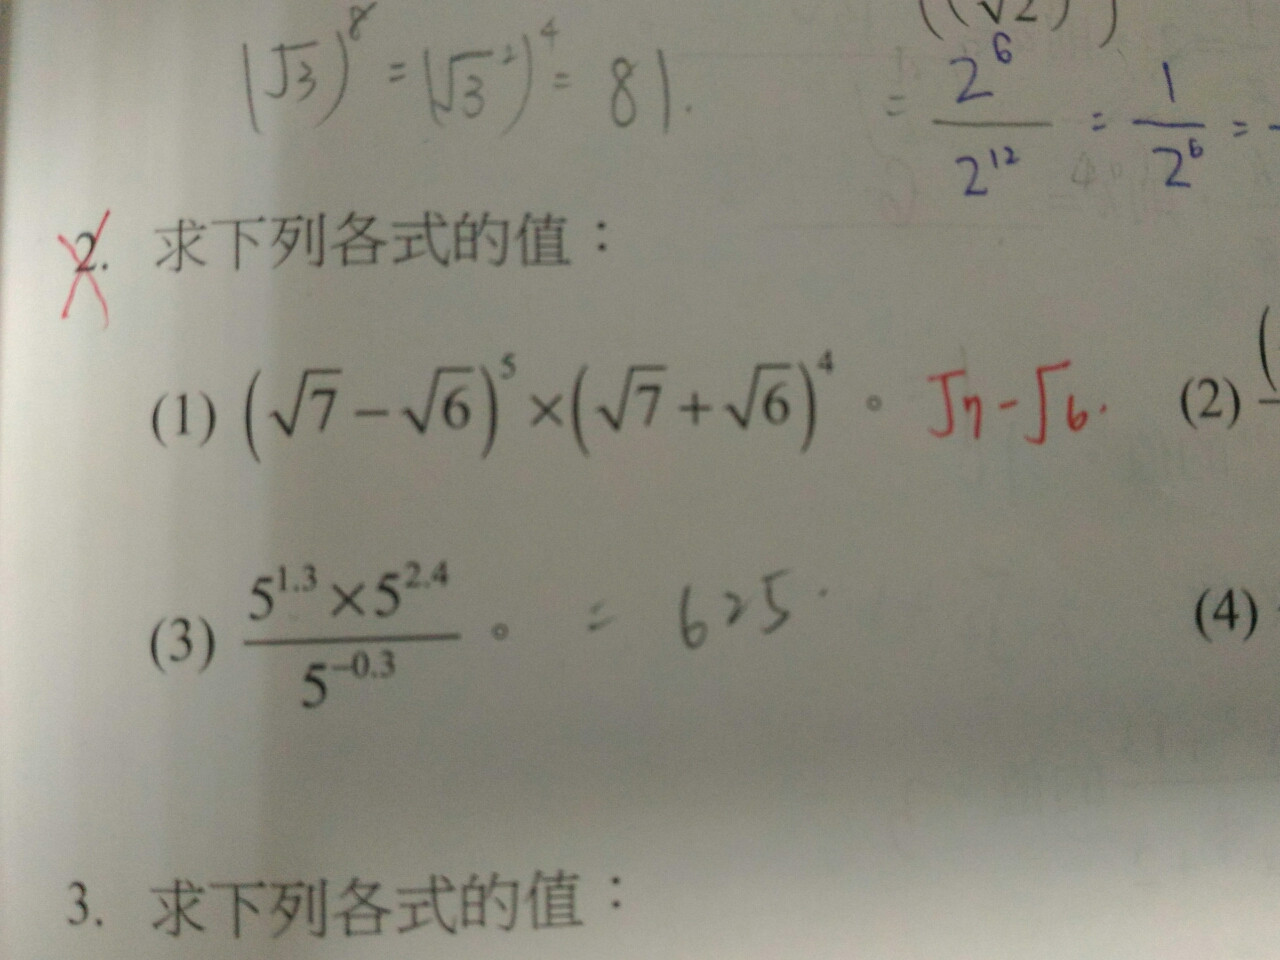 ((√2) )
(√3)^8 = (√3^2)^4 = 81.
= 2^6/2^12 = 1/2^6 =
2. 求下列各式的值：
(1) (√7－√6)^5×(√7＋√6)^4。 √7-√6. (2)
(3) 5^1.3×5^2.4/5^−0.3。 = 625. (4)
3. 求下列各式的值：